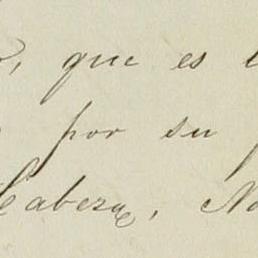 , que es
por su
Cabeza,